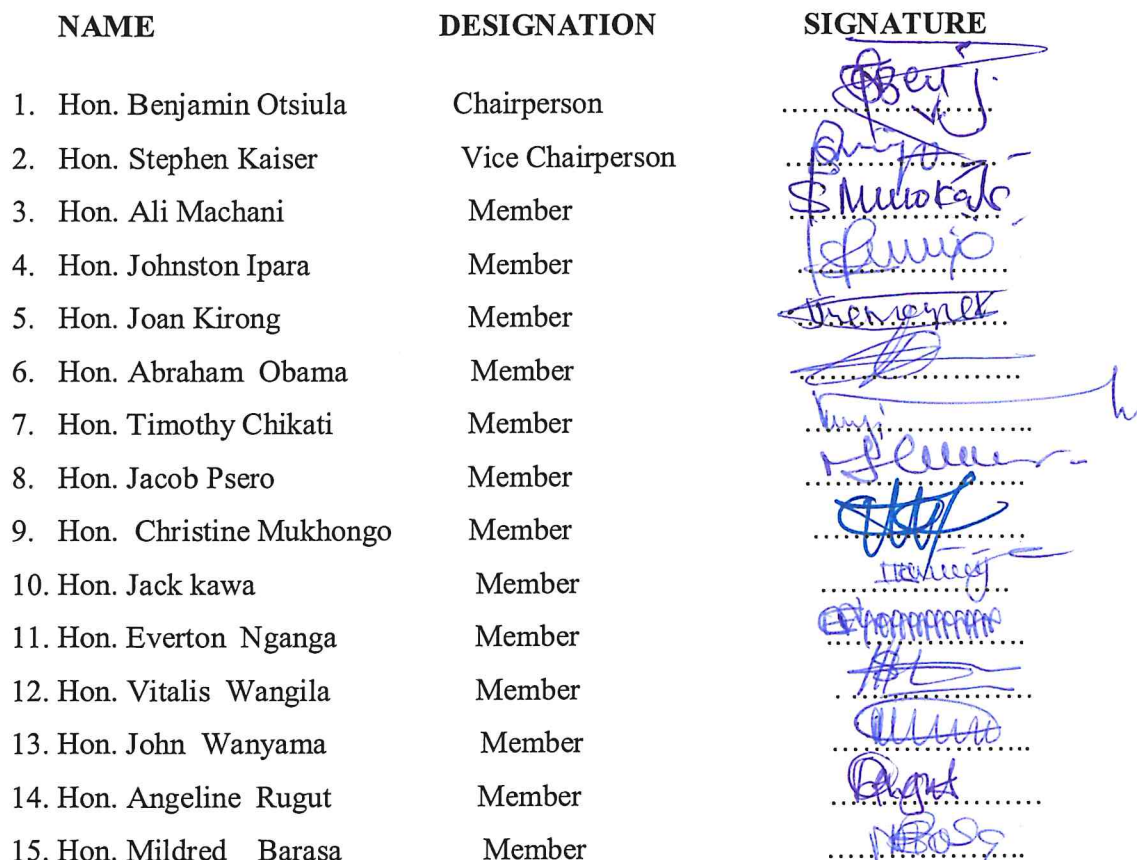 NAME DESIGNATION SIGNATURE
1. Hon. Benjamin Otsiula Chairperson
2. Hon. Stephen Kaiser Vice Chairperson
3. Hon. Ali Machani Member
4. Hon. Johnston Ipara Member
5. Hon. Joan Kirong Member
6. Hon. Abraham Obama Member
7. Hon. Timothy Chikati Member
8. Hon. Jacob Psero Member
9. Hon. Christine Mukhongo Member
10. Hon. Jack kawa Member
11. Hon. Everton Nganga Member
12. Hon. Vitalis Wangila Member
13. Hon. John Wanyama Member
14. Hon. Angeline Rugut Member
15. Hon. Mildred Barasa Member